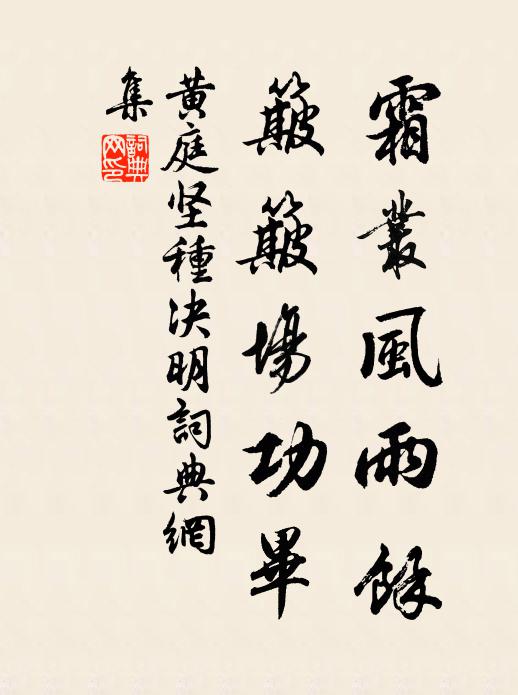 霜叢風雨餘
簸簸場功畢
黄庭坚種决明詞典網
集
詞典网印